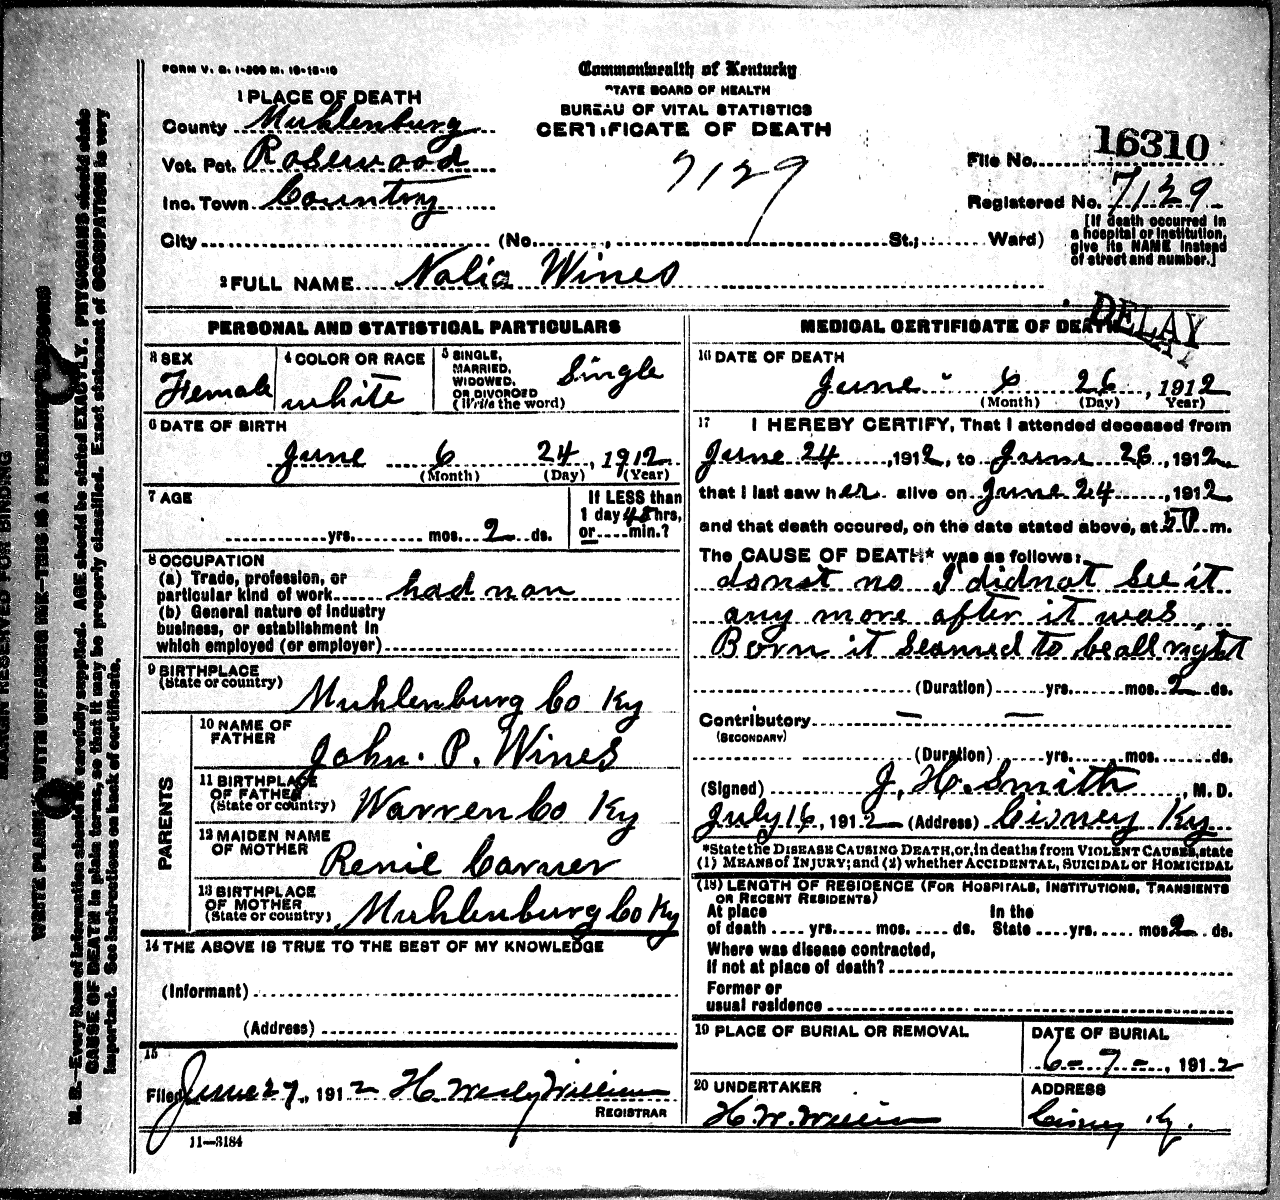 FORM V. S. 1-200 M. 10-18-10
Commonwealth of Kentucky
STATE BOARD OF HEALTH
BUREAU OF VITAL STATISTICS
CERTIFICATE OF DEATH
7129
1 PLACE OF DEATH
County Muhlenburg
Vot. Pct. Rosewood
Inc. Town Country
City (No. , St.; Ward)
File No. 16310
Registered No. 7129
[If death occurred in
a hospital or institution,
give its NAME instead
of street and number.]
2 FULL NAME Nolia Wines
DELAY
PERSONAL AND STATISTICAL PARTICULARS
3 SEX
Female
4 COLOR OR RACE
white
5 SINGLE,
MARRIED,
WIDOWED,
OR DIVORCED
(Write the word)
Single
6 DATE OF BIRTH
June 6 24, 1912
(Month) (Day) (Year)
7 AGE
yrs. mos. 2 ds.
If LESS than
1 day 48 hrs,
or min.?
8 OCCUPATION
(a) Trade, profession, or
particular kind of work had non
(b) General nature of industry
business, or establishment in
which employed (or employer)
9 BIRTHPLACE
(State or country)
Muhlenburg Co Ky
PARENTS
10 NAME OF
FATHER
John. P. Wines
11 BIRTHPLACE
OF FATHER
(State or country)
Warren Co Ky
12 MAIDEN NAME
OF MOTHER
Renie Carner
13 BIRTHPLACE
OF MOTHER
(State or country)
Muhlenburg Co Ky
14 THE ABOVE IS TRUE TO THE BEST OF MY KNOWLEDGE
(Informant)
(Address)
15
Filed June 27, 1912 H. Wesly
REGISTRAR
11—3184
MEDICAL CERTIFICATE OF DEATH
16 DATE OF DEATH
June 6 26, 1912
(Month) (Day) Year)
17 I HEREBY CERTIFY, That I attended deceased from
June 24, 1912, to June 26, 1912
that I last saw her alive on June 24, 1912
and that death occured, on the date stated above, at 5 P m.
The CAUSE OF DEATH* was as follows:
donot no I didnot see it
any more after it was
Born it seamed to be all right
(Duration) yrs. mos. 2 ds.
Contributory — —
(SECONDARY)
(Duration) yrs. mos. ds.
(Signed) J. H. Smith, M. D.
July 16, 1912 (Address) Cisney Ky
*State the DISEASE CAUSING DEATH, or, in deaths from VIOLENT CAUSES, state
(1) MEANS OF INJURY; and (2) whether ACCIDENTAL, SUICIDAL or HOMICIDAL
(18) LENGTH OF RESIDENCE (FOR HOSPITALS, INSTITUTIONS, TRANSIENTS
OR RECENT RESIDENTS)
At place In the
of death yrs. mos. ds. State yrs. mos. 2 ds.
Where was disease contracted,
If not at place of death?
Former or
usual residence
19 PLACE OF BURIAL OR REMOVAL
DATE OF BURIAL
6-7-, 1912
20 UNDERTAKER
H. W.
ADDRESS
Cisney Ky.
MARGIN RESERVED FOR BINDING
WRITE PLAINLY WITH UNFADING INK—THIS IS A PERMANENT RECORD
N. B.—Every item of information should be carefully supplied. AGE should be stated EXACTLY. PHYSICIANS should state
CAUSE OF DEATH in plain terms, so that it may be properly classified. Exact statement of OCCUPATION is very
important. See instructions on back of certificate.